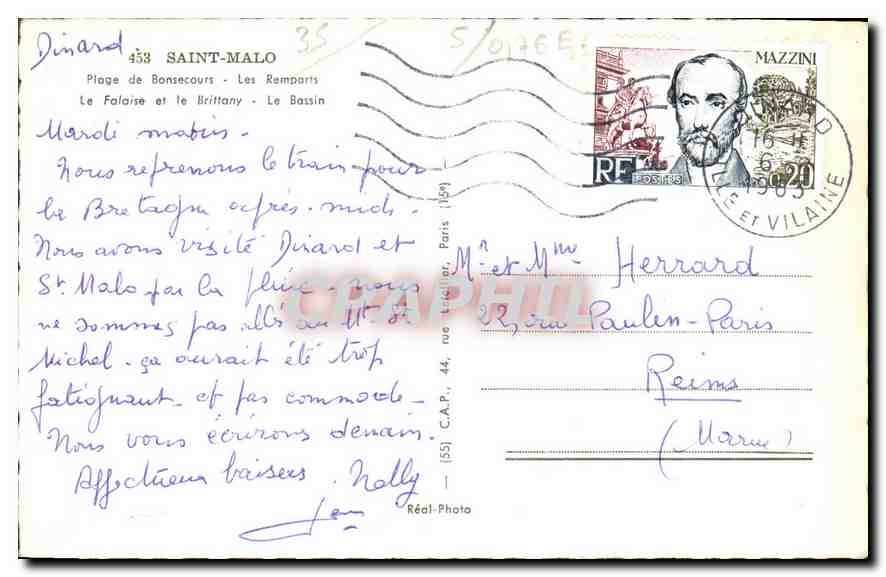 Dinard
35
5/0,76 E
453 SAINT-MALO
Plage de Bonsecours - Les Remparts
Le Falaise et le Brittany - Le Bassin
Mardi matin -
Nous reprenons le train pour
la Bretagne après-midi.
Nous avons visité Dinard et
St Malo par la pluie - nous
ne sommes pas allés au Mt St
Michel - ça aurait été trop
fatiguant - et pas commode -
Nous vous écrirons demain.
Affectueux baisers. Nelly
Jean
(55) C.A.P., 44, rue Letellier, Paris (15e)
Réal-Photo
MAZZINI
RF
POSTES
0,20
DINARD
16 H
6
1963
ILLE ET VILAINE
Mr et Mme Herrard
22, rue Paulin-Paris
Reims
(Marne)
CPAPHIL